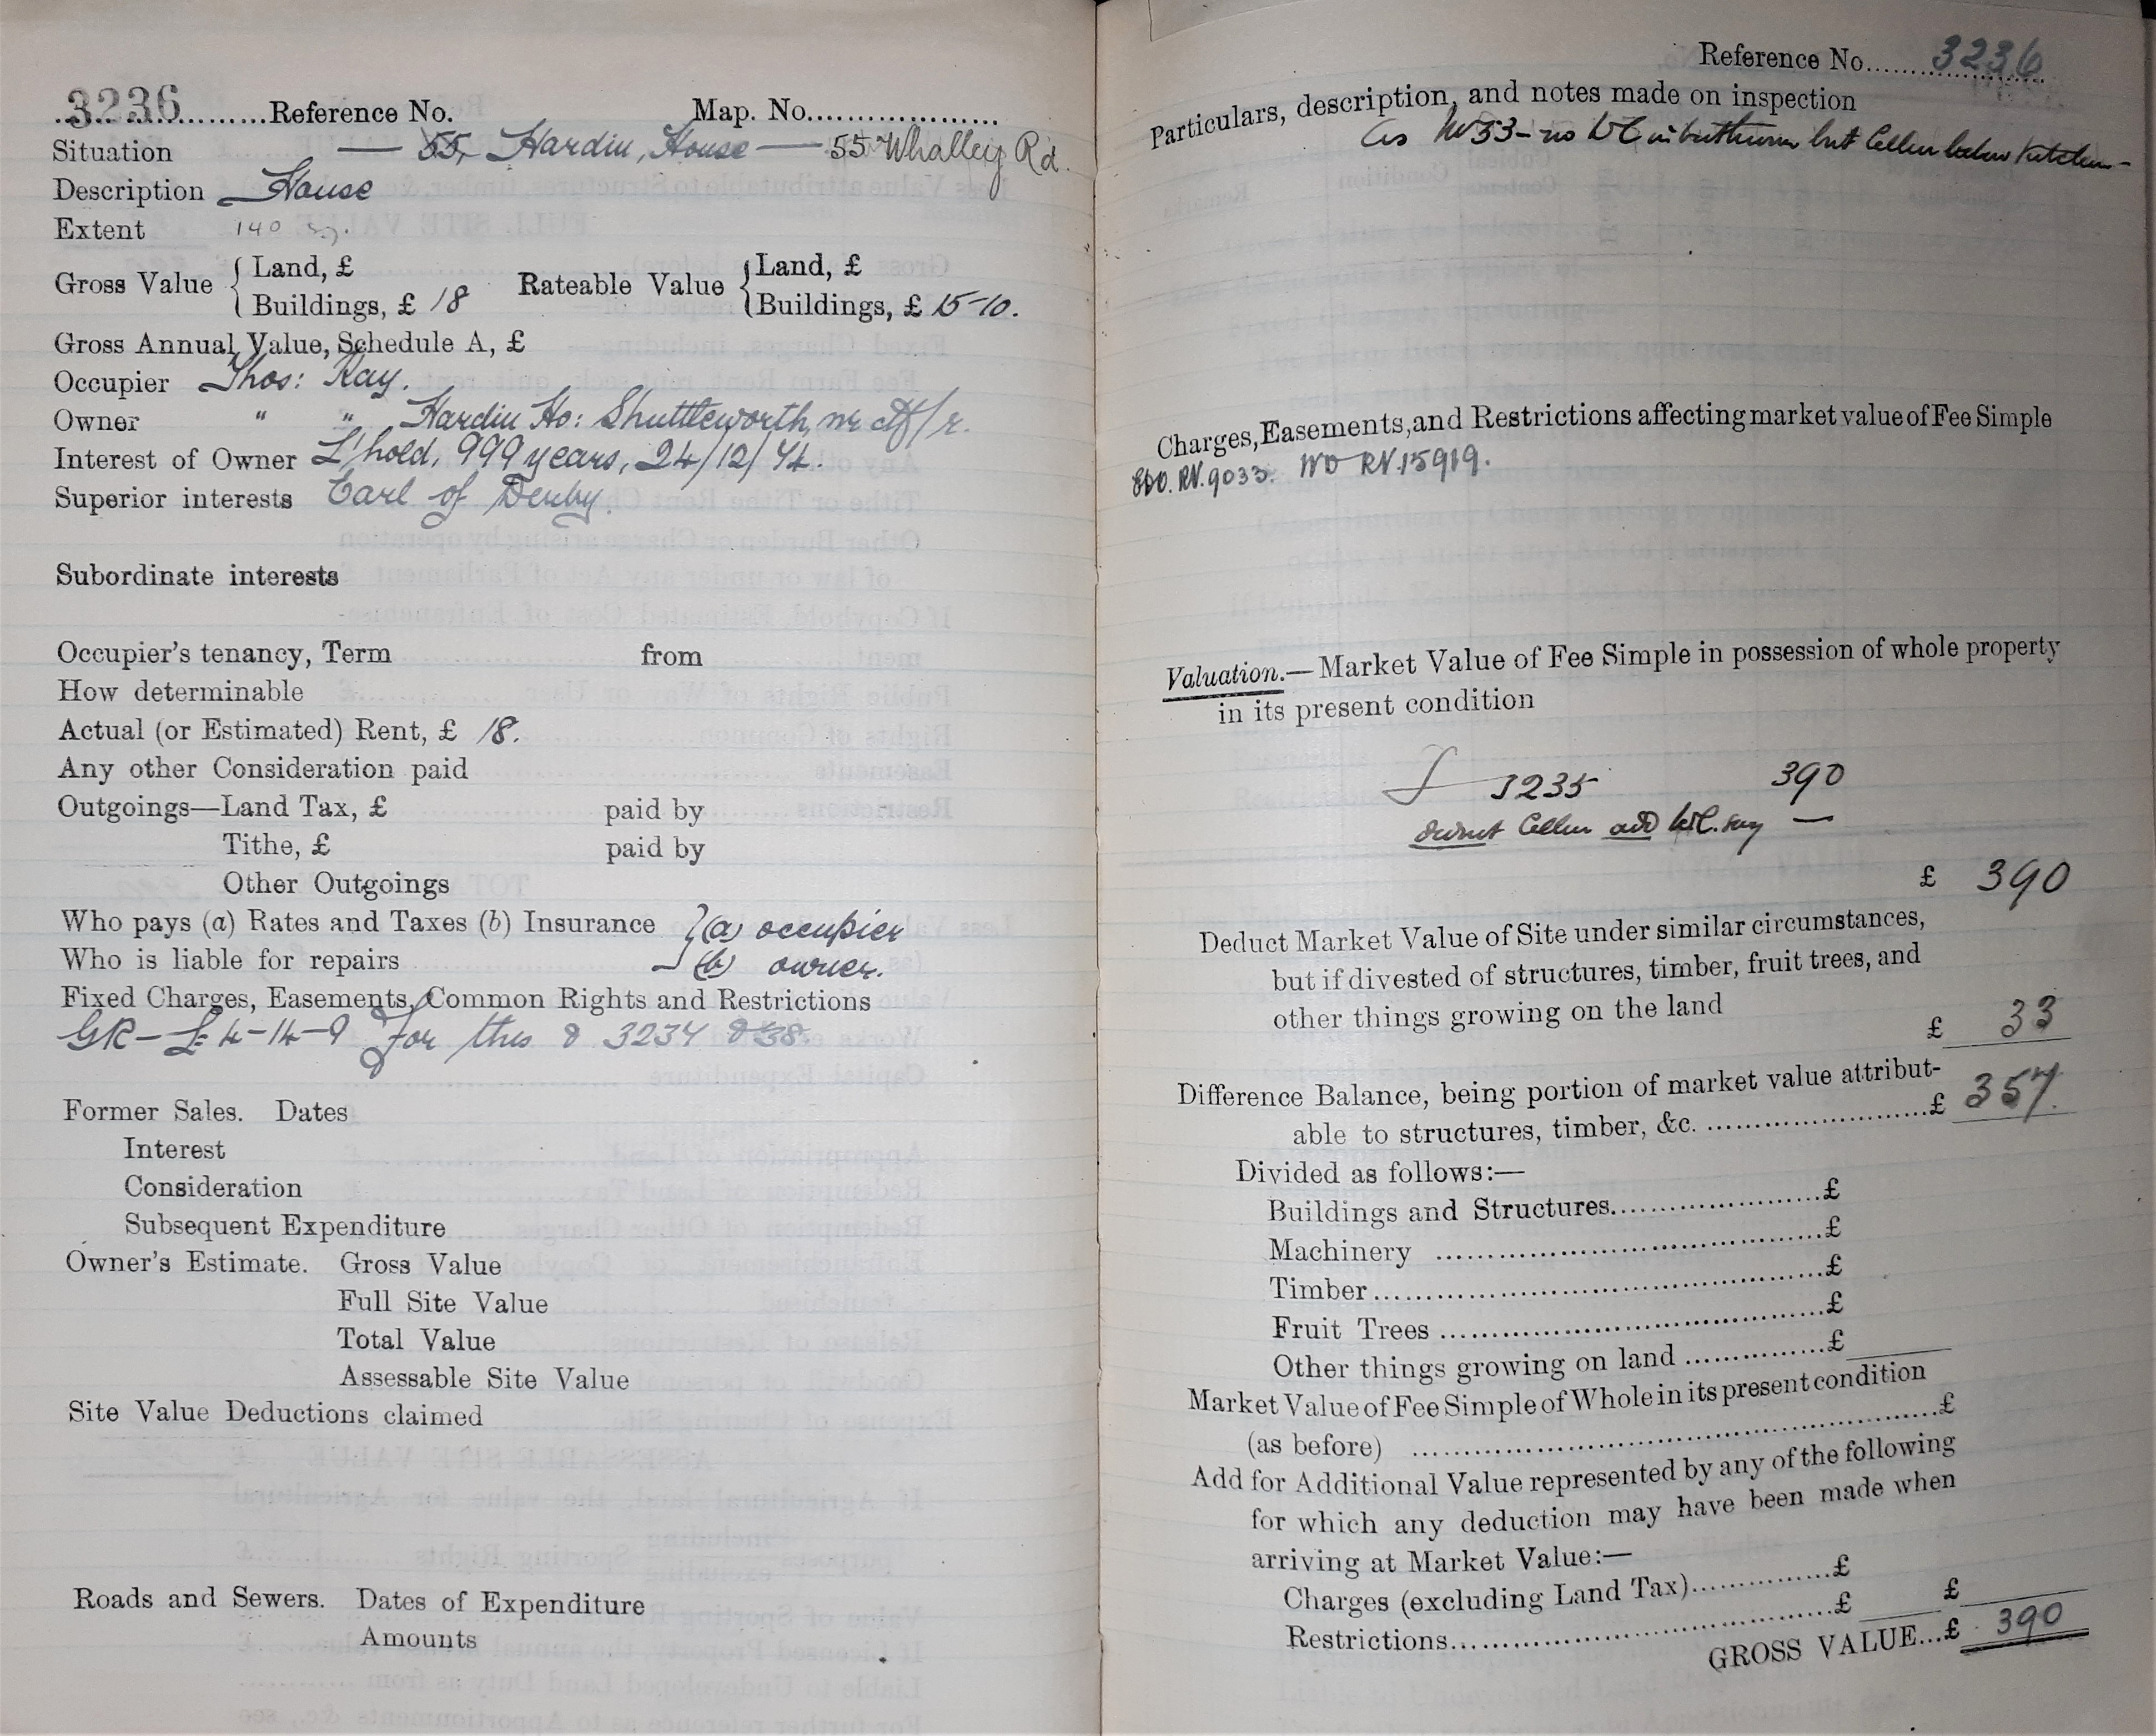 3236 Reference No. Map. No.
Situation — 55, Hardin, House — 55 Whalley Rd.
Description House
Extent 140 sy.
Gross Value { Land, £ Rateable Value { Land, £
Buildings, £ 18 Buildings, £ 15-10.
Gross Annual Value, Schedule A, £
Occupier Thos: Kay.
Owner " " Hardin Ho: Shuttleworth, nr
Interest of Owner L'hold, 999 years, 24/12/74.
Superior interests Earl of Derby.
Subordinate interests
Occupier's tenancy, Term from
How determinable
Actual (or Estimated) Rent, £ 18.
Any other Consideration paid
Outgoings—Land Tax, £ paid by
Tithe, £ paid by
Other Outgoings
Who pays (a) Rates and Taxes (b) Insurance } (a) occupier
Who is liable for repairs (b) owner.
Fixed Charges, Easements, Common Rights and Restrictions
GR — £4-14-9 for this & 3234 & 38.
Former Sales. Dates
Interest
Consideration
Subsequent Expenditure
Owner's Estimate. Gross Value
Full Site Value
Total Value
Assessable Site Value
Site Value Deductions claimed
Roads and Sewers. Dates of Expenditure
Amounts
Reference No. 3236
Particulars, description, and notes made on inspection
as No 53 - no WC in bathroom but Cellar below Kitchen -
Charges, Easements, and Restrictions affecting market value of Fee Simple
EDO. RV. 9033. WO RV. 15919.
Valuation.—Market Value of Fee Simple in possession of whole property
in its present condition
3235 390
deduct Cellar add W.C. say —
£ 390
Deduct Market Value of Site under similar circumstances,
but if divested of structures, timber, fruit trees, and
other things growing on the land
£ 33
Difference Balance, being portion of market value attribut-
able to structures, timber, &c. £ 357.
Divided as follows:—
Buildings and Structures £
Machinery £
Timber £
Fruit Trees £
Other things growing on land £
Market Value of Fee Simple of Whole in its present condition
(as before) £
Add for Additional Value represented by any of the following
for which any deduction may have been made when
arriving at Market Value:—
Charges (excluding Land Tax) £
Restrictions £ £
GROSS VALUE...£ 390